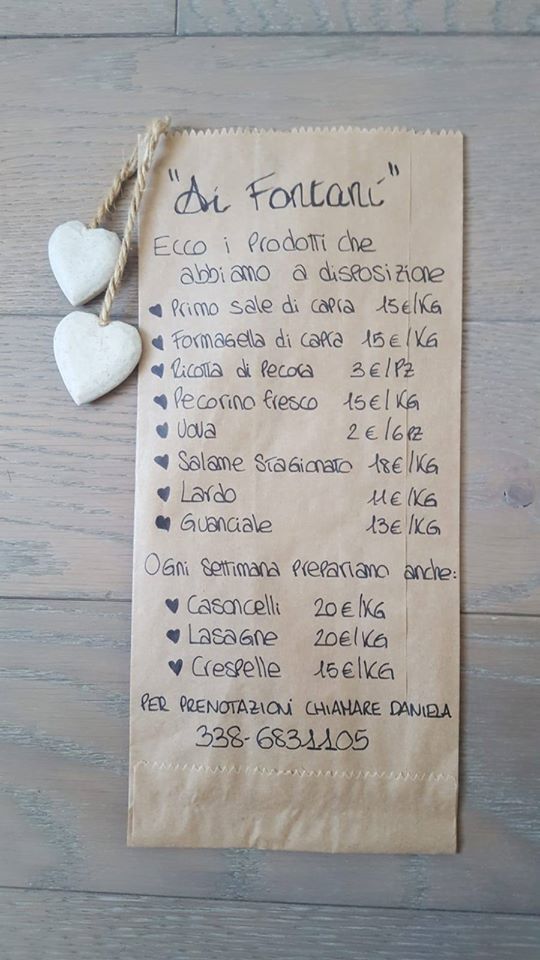 "Ai Fontani"
Ecco i prodotti che
abbiamo a disposizione
♥ Primo sale di capra 15€/KG
♥ Formagella di capra 15€/KG
♥ Ricotta di pecora 3€/PZ
♥ Pecorino fresco 15€/KG
♥ Uova 2€/6PZ
♥ Salame stagionato 18€/KG
♥ Lardo 11€/KG
♥ Guanciale 13€/KG
Ogni settimana prepariamo anche:
♥ Casoncelli 20€/KG
♥ Lasagne 20€/KG
♥ Crespelle 15€/KG
PER PRENOTAZIONI CHIAMARE DANIELA
338-6831105